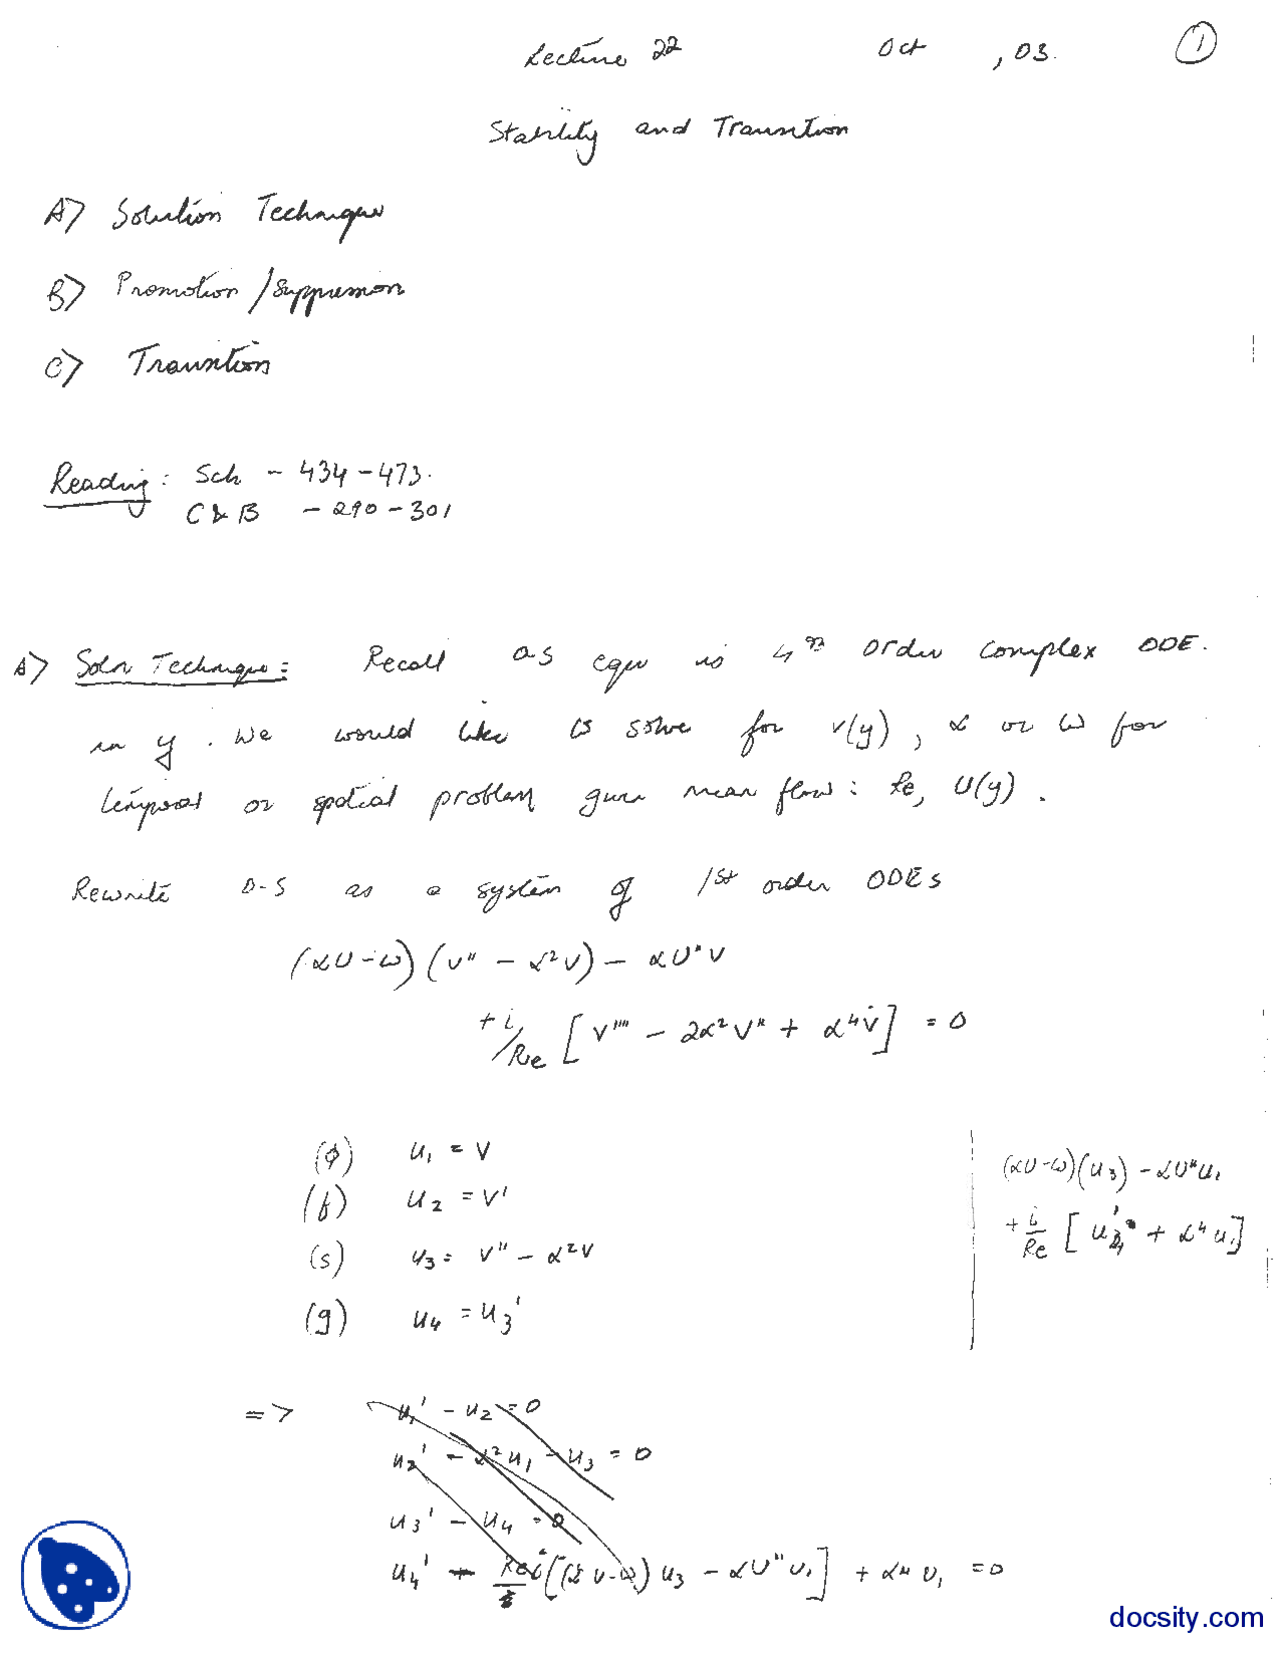 Lecture 22 Oct , 03. 1
Stability and Transition
A) Solution Technique
B) Promotion/Suppression
C) Transition
Reading: Sch - 434-473.
C&B - 290-301
A) Soln Technique: Recall OS eqn is 4th order complex ODE.
in y. We would like to solve for v(y), α or ω for
temporal or spatial problem given mean flow: Re, U(y).
Rewrite O-S as a system of 1st order ODEs
(αU-ω)(v'' - α²v) - αU''v
+ i/Re [v'''' - 2α²v'' + α⁴v] = 0
(φ) u₁ = v
(f) u₂ = v'
(s) u₃ = v'' - α²v
(g) u₄ = u₃'
(αU-ω)(u₃) - αU''u₁
+ i/Re [ + α⁴u₁]
=> u₁' - u₂ = 0
u₂' - α²u₁ - u₃ = 0
u₃' - u₄ = 0
u₄' + Re i[(αU-ω)u₃ - αU''u₁] + α⁴u₁ = 0
docsity.com